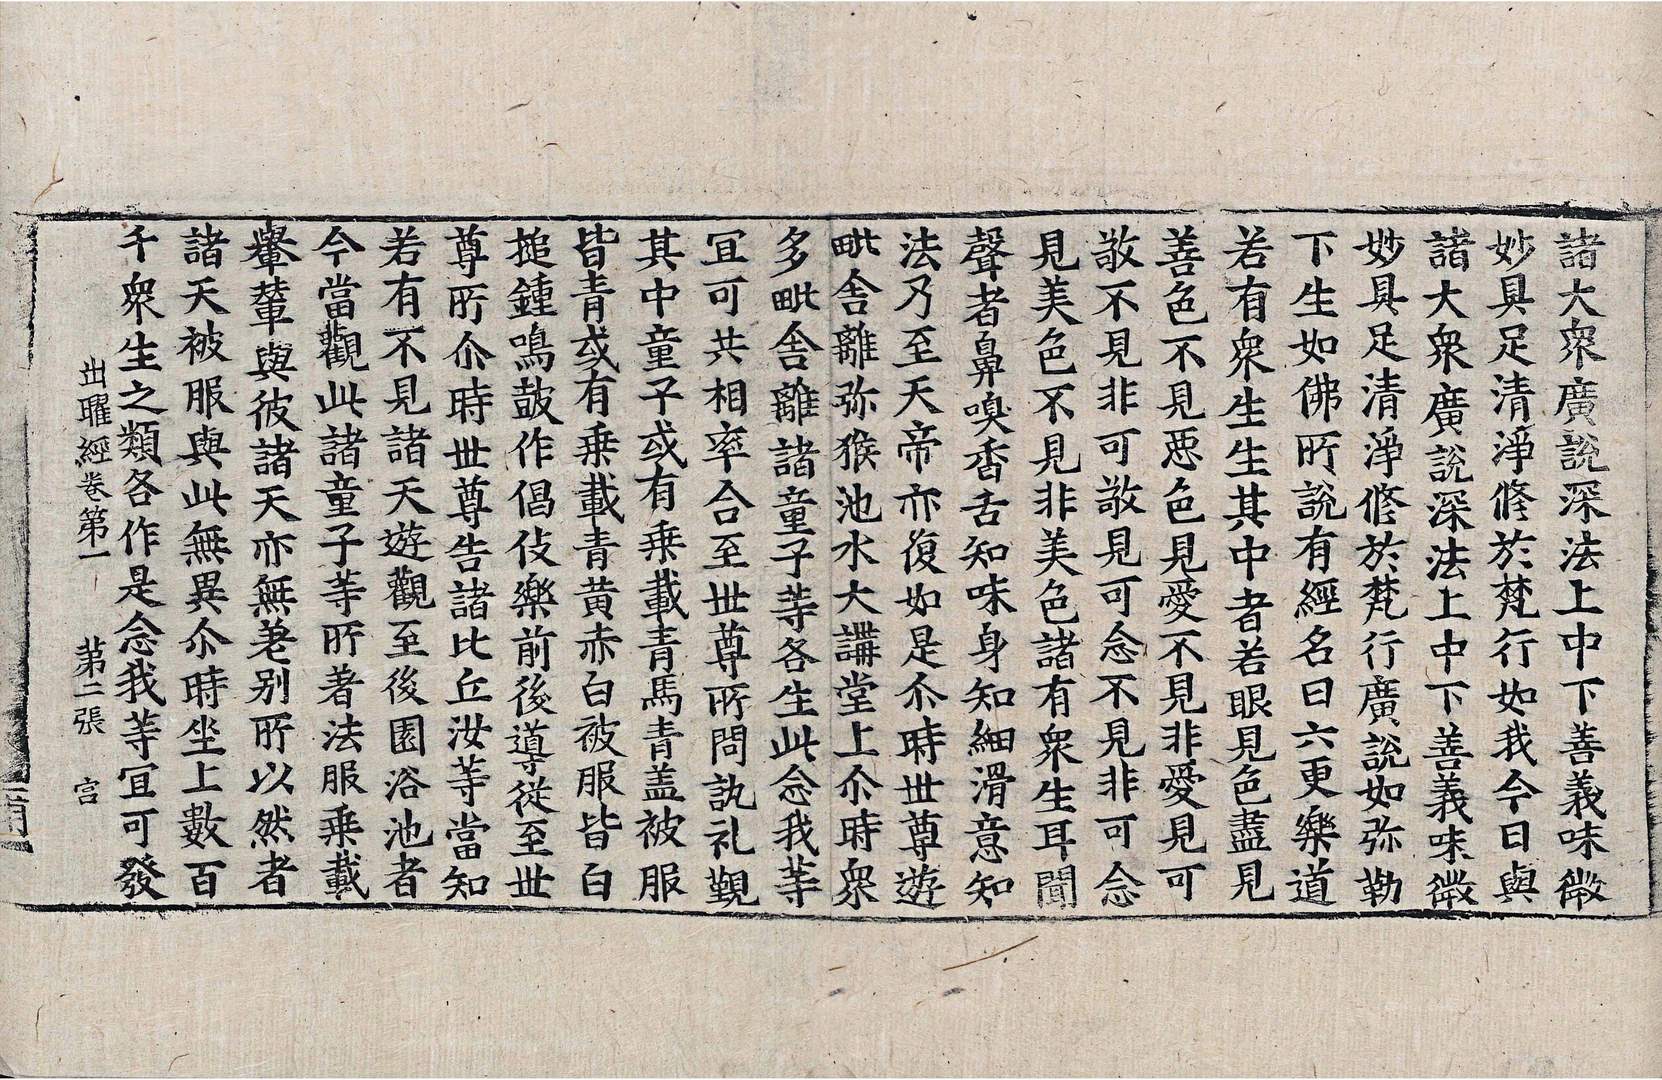 諸大衆廣說深法上中下善義味微
妙具足清淨修於梵行如我今日與
諸大衆廣說深法上中下善義味微
妙具足清淨修於梵行廣說如弥勒
下生如佛所說有經名曰六更樂道
若有衆生生其中者若眼見色盡見
善色不見惡色見愛不見非愛見可
敬不見非可敬見可念不見非可念
見美色不見非美色諸有衆生耳聞
聲者鼻嗅香舌知味身知細滑意知
法乃至天帝亦復如是尒時世尊遊
毗舍離弥猴池水大講堂上尒時衆
多毗舍離諸童子等各生此念我等
宜可共相率合至世尊所問訊礼覲
其中童子或有乗載青馬青盖被服
皆青或有乗載青黃赤白被服皆白
搥鍾鳴鼓作倡伎樂前後導從至世
尊所尒時世尊告諸比丘汝等當知
若有不見諸天遊觀至後園浴池者
今當觀此諸童子等所著法服乗載
轝輦與彼諸天亦無差別所以然者
諸天被服與此無異尒時坐上數百
千衆生之類各作是念我等宜可發
出曜經卷第一 第二張 宮